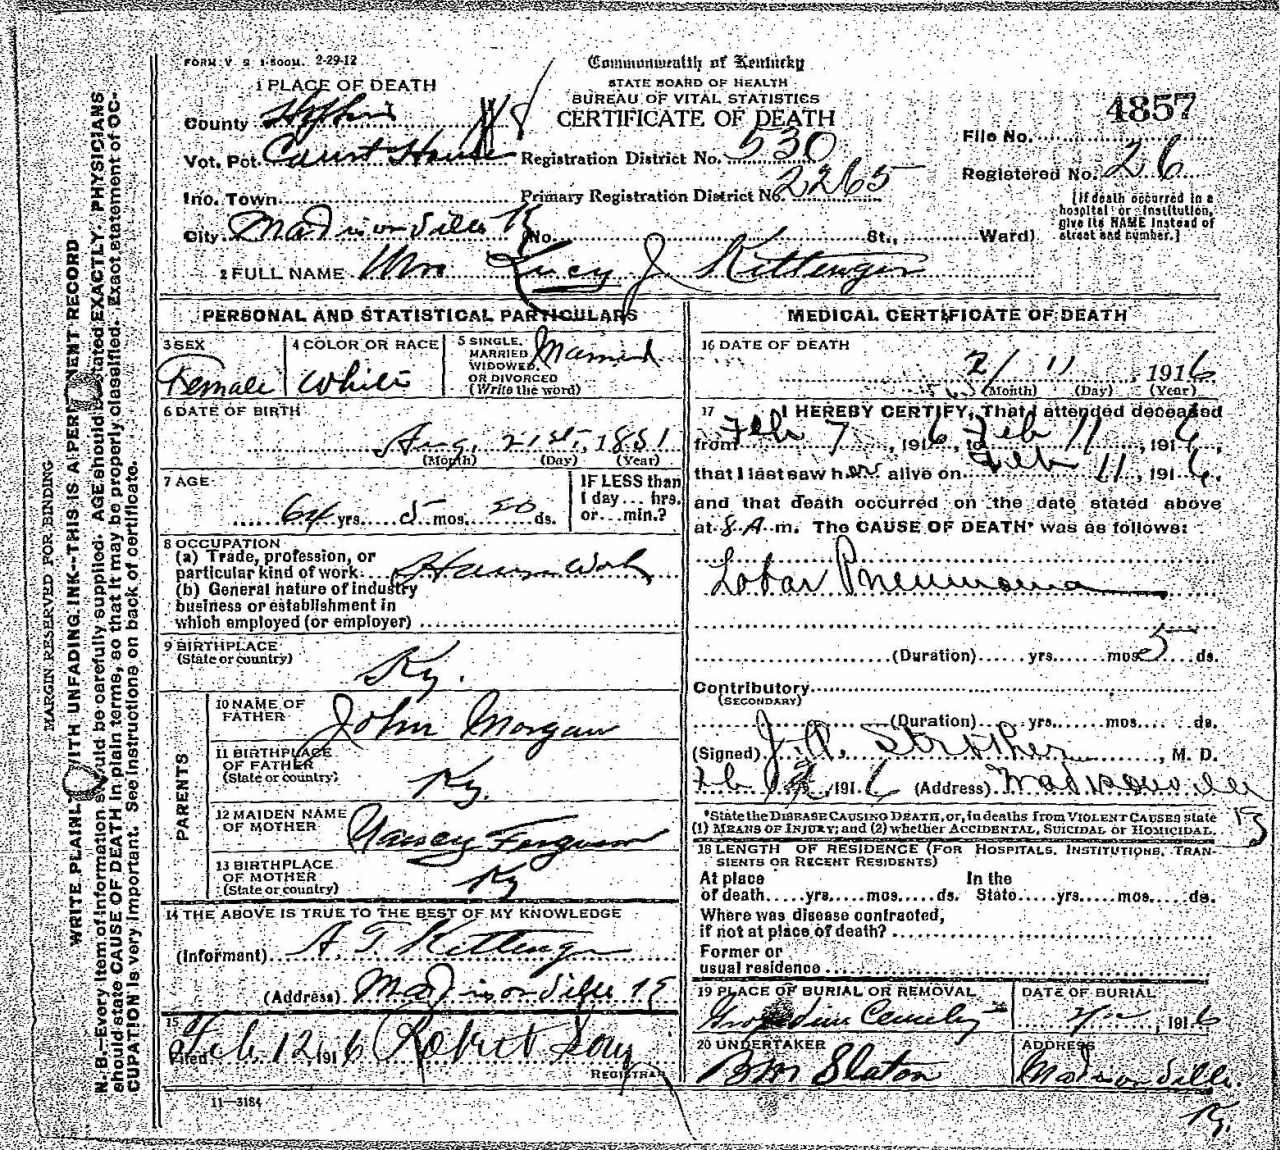 FORM V. S. 1-500M. 2-29-12
Commonwealth of Kentucky
STATE BOARD OF HEALTH
BUREAU OF VITAL STATISTICS
CERTIFICATE OF DEATH
1 PLACE OF DEATH
County
Vot. Pct. Court House
Inc. Town
City Madisonville Ky No. St., Ward)
Registration District No. 530
Primary Registration District No. 2265
4857
File No.
Registered No. 26
[If death occurred in a
hospital or institution,
give its NAME instead of
street and number.]
2 FULL NAME Mrs Lucy J Kittenger
PERSONAL AND STATISTICAL PARTICULARS
3 SEX
Female
4 COLOR OR RACE
White
5 SINGLE,
MARRIED,
WIDOWED,
OR DIVORCED
(Write the word)
Married
6 DATE OF BIRTH
Aug. 21st, 1851
(Month) (Day) (Year)
7 AGE
64 yrs. 5 mos. 20 ds.
IF LESS than
1 day ... hrs.
or ... min.?
8 OCCUPATION
(a) Trade, profession, or
particular kind of work House Work
(b) General nature of industry
business or establishment in
which employed (or employer)
9 BIRTHPLACE
(State or country)
Ky.
PARENTS
10 NAME OF
FATHER
John Morgan
11 BIRTHPLACE
OF FATHER
(State or country)
Ky.
12 MAIDEN NAME
OF MOTHER
Nancy Ferguson
13 BIRTHPLACE
OF MOTHER
(State or country)
Ky
14 THE ABOVE IS TRUE TO THE BEST OF MY KNOWLEDGE
(Informant) A T Kittenger
(Address) Madisonville Ky
15
Filed Feb 12 1916 Robert Sory
REGISTRAR
11-3184
MEDICAL CERTIFICATE OF DEATH
16 DATE OF DEATH
2/ 11, 1916
(Month) (Day) (Year)
17 I HEREBY CERTIFY, That I attended deceased
from Feb 7, 1916, to Feb 11, 1916,
that I last saw her alive on Feb 11, 1916,
and that death occurred on the date stated above
at 8 A m. The CAUSE OF DEATH* was as follows:
Lobar Pneumonia
(Duration) yrs. mos. 5 ds.
Contributory
(SECONDARY)
(Duration) yrs. mos. ds.
(Signed) J. A. Strother, M. D.
Feb 1916 (Address) Madisonville
*State the DISEASE CAUSING DEATH, or, in deaths from VIOLENT CAUSES state
(1) MEANS OF INJURY; and (2) whether ACCIDENTAL, SUICIDAL or HOMICIDAL.
18 LENGTH OF RESIDENCE (FOR HOSPITALS, INSTITUTIONS, TRAN-
SIENTS OR RECENT RESIDENTS)
At place In the
of death yrs. mos. ds. State yrs. mos. ds.
Where was disease contracted,
if not at place of death?
Former or
usual residence
19 PLACE OF BURIAL OR REMOVAL
Cemetery
DATE OF BURIAL
1916
20 UNDERTAKER
Slaton
ADDRESS
Madisonville.
Ky.
MARGIN RESERVED FOR BINDING
WRITE PLAINLY WITH UNFADING INK--THIS IS A PERMANENT RECORD
N. B.--Every item of information should be carefully supplied. AGE should be stated EXACTLY. PHYSICIANS
should state CAUSE OF DEATH in plain terms, so that it may be properly classified. Exact statement of OC-
CUPATION is very important. See instructions on back of certificate.